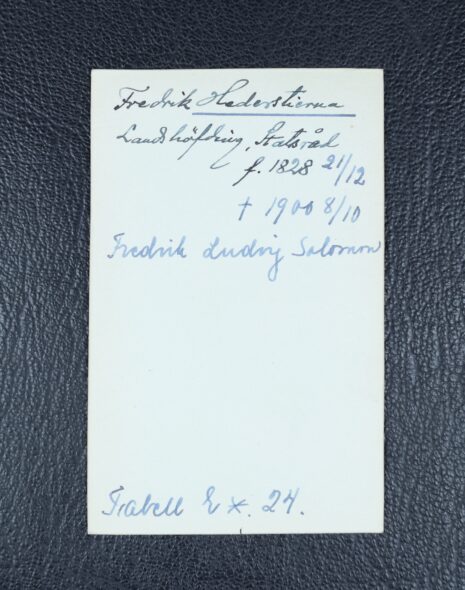 Fredrik Hederstierna
Landshöfding, Statsråd
f. 1828 21/12
† 1900 8/10
Fredrik Ludvig Salomon
Tabell E *. 24.